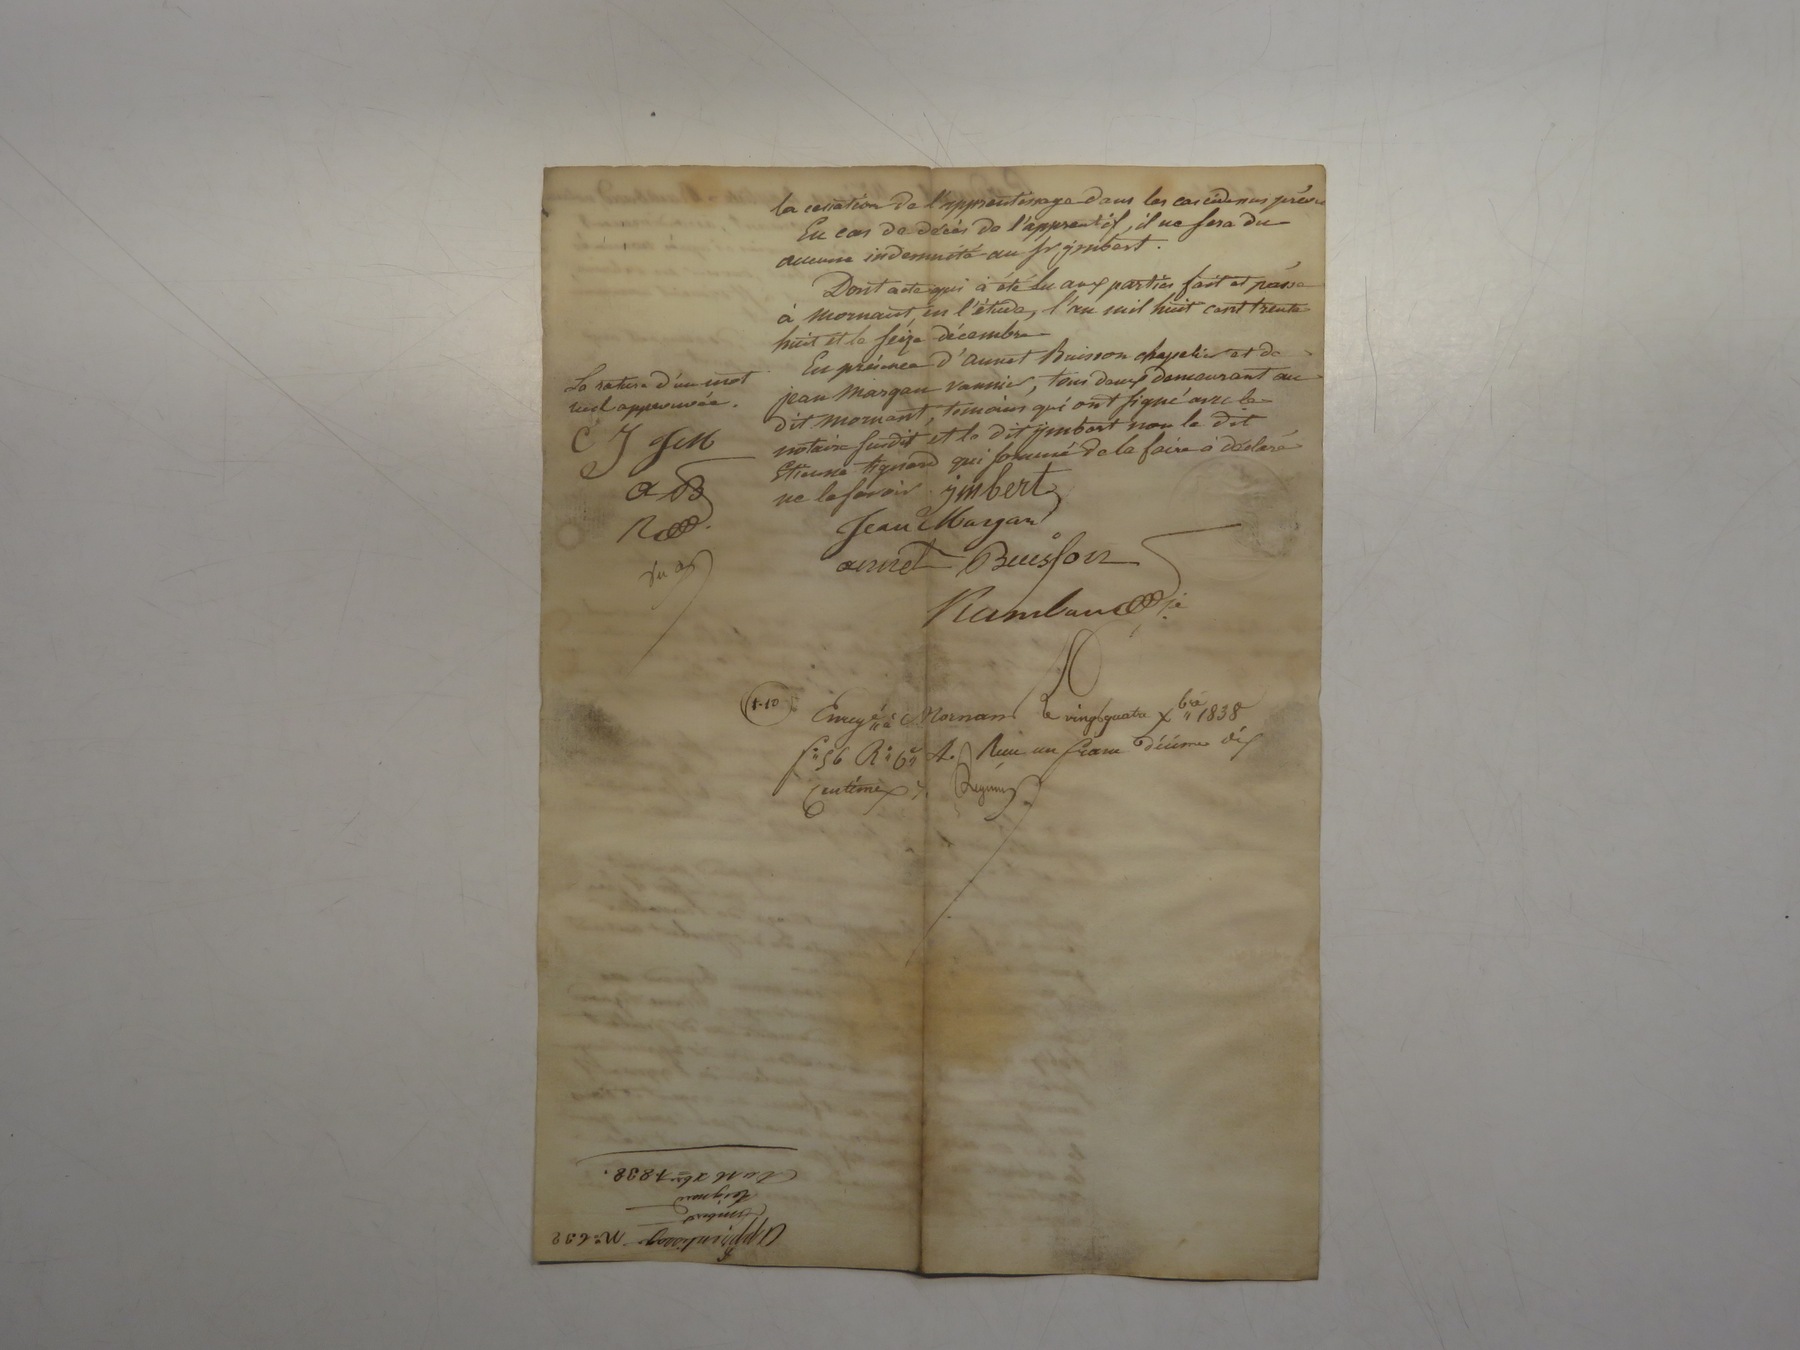 la cessation de l'apprentissage dans les cas cidenus prévu
En cas de décès de l'apprentif, il ne sera du
aucune indemnité au sr ymbert.
Dont acte qui à été lu aux parties fait et passé
à Mornant, en l'étude, l'an mil huit cent trente
huit et le seize décembre
En présence d'annet Buisson chapelier et de
jean Margan vannier, tous deux demeurant au
dit Mornant, temoins qui ont signé avec le
notaire susdit et le dit ymbert non le dit
Etienne tignard qui sommé de le faire à déclaré
ne le savoir
La rature d'un mot
nul approuvée.
C J JM
a B
R
ymbert
Jean Margan
annet Buisson
Rambaud
1-10
Enregé à Mornant le vingt quatre xbre 1838
fo 56 Ro Co 4. Reçu un franc décime dix
centimes
Apprentissage No 632
ymbert
tignard
Du 16 xbre 1838.